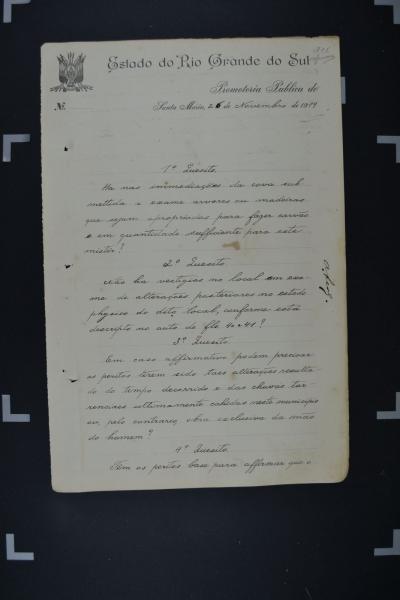 Estado do Rio Grande do Sul
Promotoria Publica de
Nº
Santa Maria, 26 de Novembro de 1919
1º Quesito.
Ha nas immediações da cova sub-
mettida a exame arvores ou madeiras
que sejam apropriadas para fazer carvão
e em quantidade sufficiente para este
mister?
2º Quesito.
Não ha vestigios no local em exa-
me de alterações posteriores no estado
physico do dito local, conforme está
descripto no auto de fls 40 a 41?
3º Quesito.
Em caso affirmativo podem precisar
os peritos terem sido taes alterações resulta-
do do tempo decorrido e das chuvas tor-
renciaes ultimamente cahidas neste municipio
ou, pelo contrario, obra exclusiva da mão
do homem?
4º Quesito.
Têm os peritos base para affirmar que o